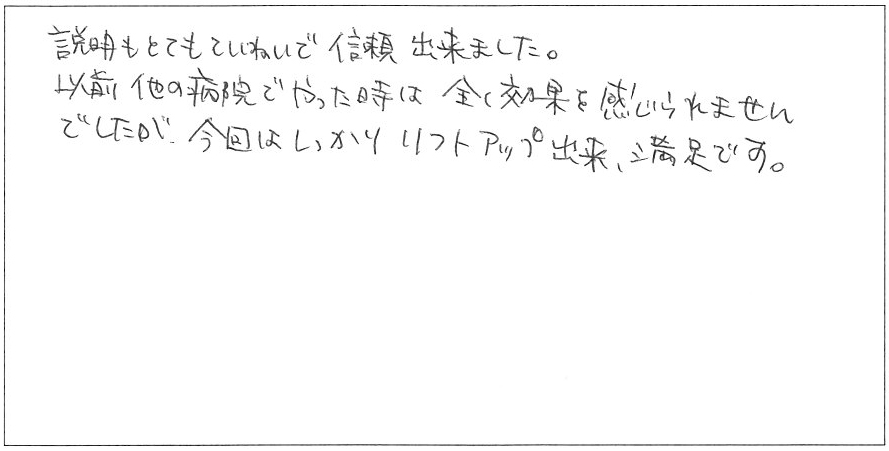 説明もとてもていねいで信頼出来ました。
以前他の病院でやった時は全く効果を感じられません
でしたが、今回はしっかりリフトアップ出来、満足です。